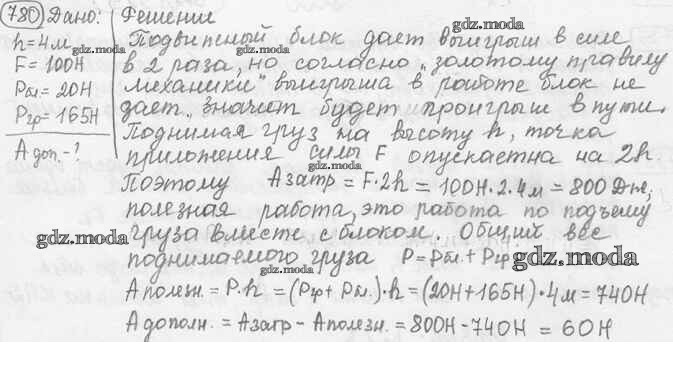 780 Дано: Решение
h=4м Подвижный блок дает выигрыш в силе
F=100Н в 2 раза, но согласно „золотому правилу
Pбл=20Н механики" выигрыша в работе блок не
Pгр=165Н дает, значит будет и проигрыш в пути.
Aдоп-? Поднимая груз на высоту h, точка
приложения силы F опускается на 2h.
Поэтому Aзатр=F·2h=100Н·2·4м=800Дж;
полезная работа, это работа по подъему
груза вместе с блоком. Общий вес
поднимаемого груза P=Pбл+Pгр
Aполезн.=P·h=(Pгр+Pбл)·h=(20Н+165Н)·4м=740Н
Aдополн.=Aзатр-Aполезн.=800Н-740Н=60Н
gdz.moda
gdz.moda
gdz.moda
gdz.moda
gdz.moda
gdz.moda
gdz.moda
gdz.moda